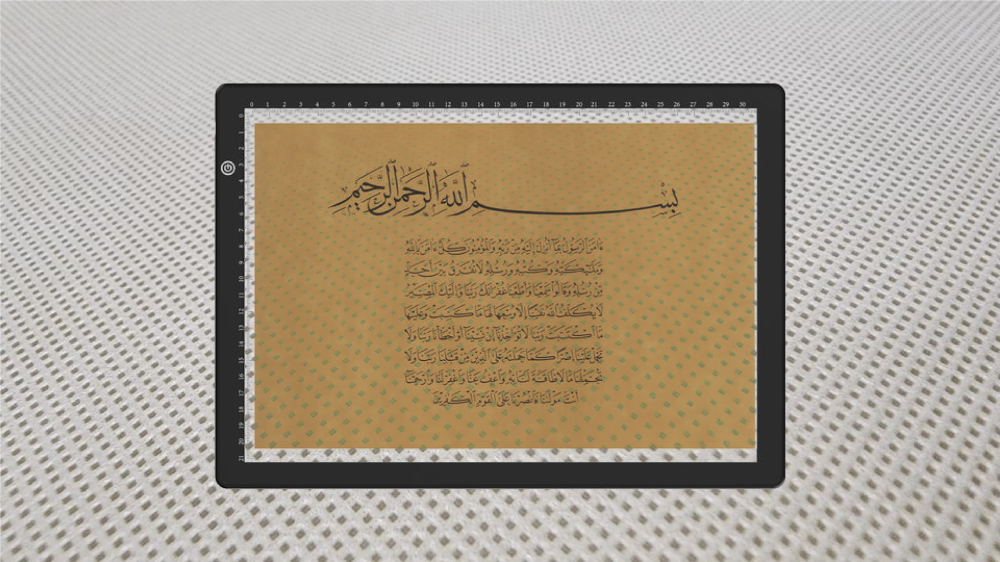 0 1 2 3 4 5 6 7 8 9 10 11 12 13 14 15 16 17 18 19 20 21 22 23 24 25 26 27 28 29 30
0
1
2
3
4
5
6
7
8
9
10
11
12
13
14
15
16
17
18
19
20
21
بسم الله الرحمن الرحيم
ءَامَنَ الرَّسُولُ بِمَا أُنْزِلَ إِلَيْهِ مِنْ رَبِّهِ وَالْمُؤْمِنُونَ كُلٌّ ءَامَنَ بِاللَّهِ
وَمَلَٰئِكَتِهِ وَكُتُبِهِ وَرُسُلِهِ لَا نُفَرِّقُ بَيْنَ أَحَدٍ
مِنْ رُسُلِهِ وَقَالُوا سَمِعْنَا وَأَطَعْنَا غُفْرَانَكَ رَبَّنَا وَإِلَيْكَ الْمَصِيرُ
لَا يُكَلِّفُ اللَّهُ نَفْسًا إِلَّا وُسْعَهَا لَهَا مَا كَسَبَتْ وَعَلَيْهَا
مَا اكْتَسَبَتْ رَبَّنَا لَا تُؤَاخِذْنَا إِنْ نَسِينَا أَوْ أَخْطَأْنَا رَبَّنَا وَلَا
تَحْمِلْ عَلَيْنَا إِصْرًا كَمَا حَمَلْتَهُ عَلَى الَّذِينَ مِنْ قَبْلِنَا رَبَّنَا وَلَا
تُحَمِّلْنَا مَا لَا طَاقَةَ لَنَا بِهِ وَاعْفُ عَنَّا وَاغْفِرْ لَنَا وَارْحَمْنَا
أَنْتَ مَوْلَٰنَا فَانْصُرْنَا عَلَى الْقَوْمِ الْكَٰفِرِينَ